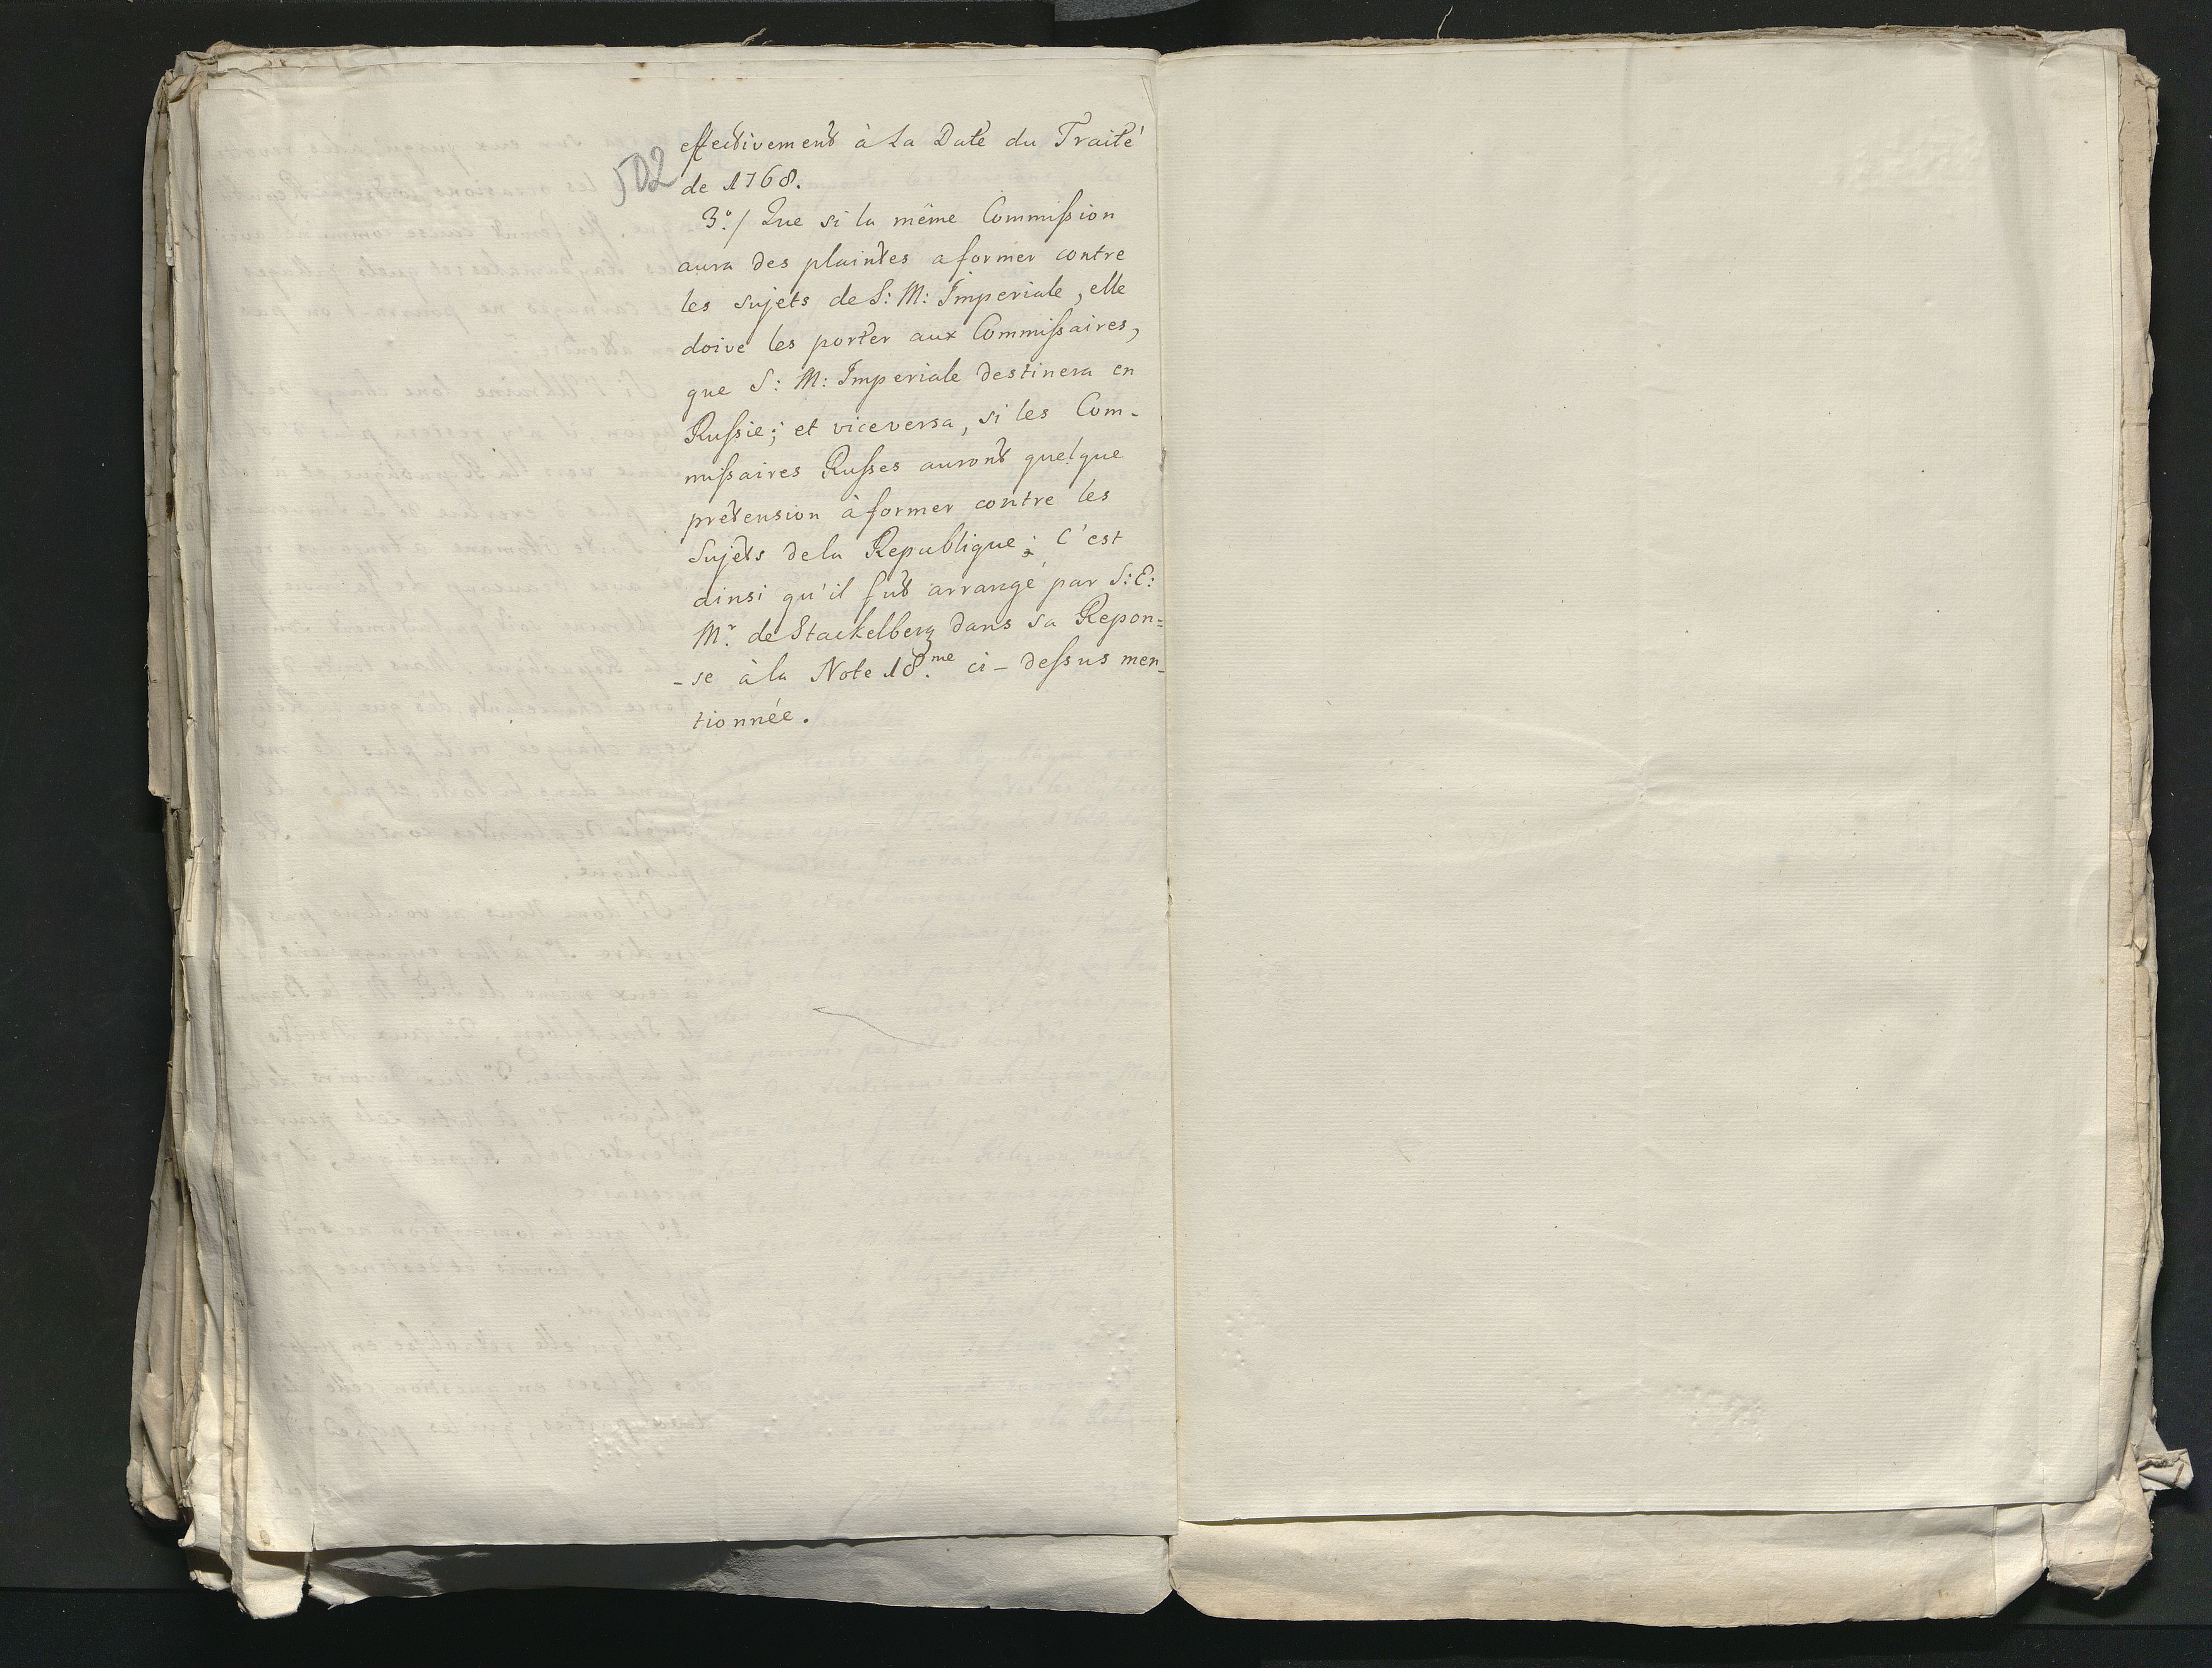 effectivement à la Date du Traité
502
de 1768.
3.º/ Que si la même Commißion
aura des plaintes a former contre
les sujets de S: M: Imperiale, elle
doive les porter aux Commißaires,
que S: M: Imperiale destinera en
Rußie; et viceversa, si les Com-
mißaires Rußes auront quelque
pretension à former contre les
Sujets dela Republique; C'est
ainsi qu'il fut arrangé par S: E:
Mr. de Stackelberg dans sa Repon=
-se à la Note 18.me ci-deßus men-
tionnée.